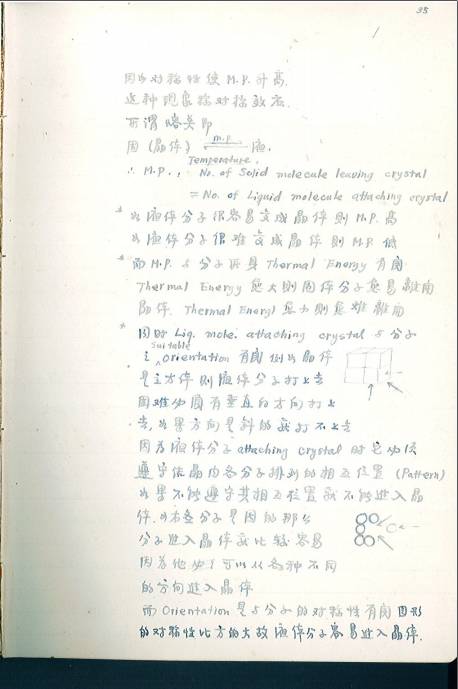 38
因为对称性使 M.P. 升高,
这种现象称对称效应.
所谓临关即
固 (晶体) m.p. 液.
Temperature,
∴ M.P. : No. of Solid molecule leaving crystal
= No. of Liquid molecule attaching crystal
* 如液体分子很容易变成晶体则 M.P. 高
如液体分子很难变成晶体则 M.P. 低
* 而 M.P. 与分子本身 Thermal Energy 有关
Thermal Energy 愈大则固体分子愈易离开
晶体. Thermal Energy 愈小则愈难离开
* 同时 Liq. mole. attaching crystal 与分子
之 suitable orientation 有关 例如晶体
是立方体 则液体分子打上去
困难必须有垂直的方向打上
去, 如果方向是斜的就打不上去
因为液体分子 attaching crystal 时它必须
遵守依晶内各分子排列的相互位置 (Pattern)
如果不能遵守其相互位置就不能进入晶
体. 如右分子是圆的那么
分子进入晶体就比较容易
因为他们可以从各种不同
的方向进入晶体
而 Orientation 是与分子的对称性有关 图形
的对称性比方的大故液体分子容易进入晶体.